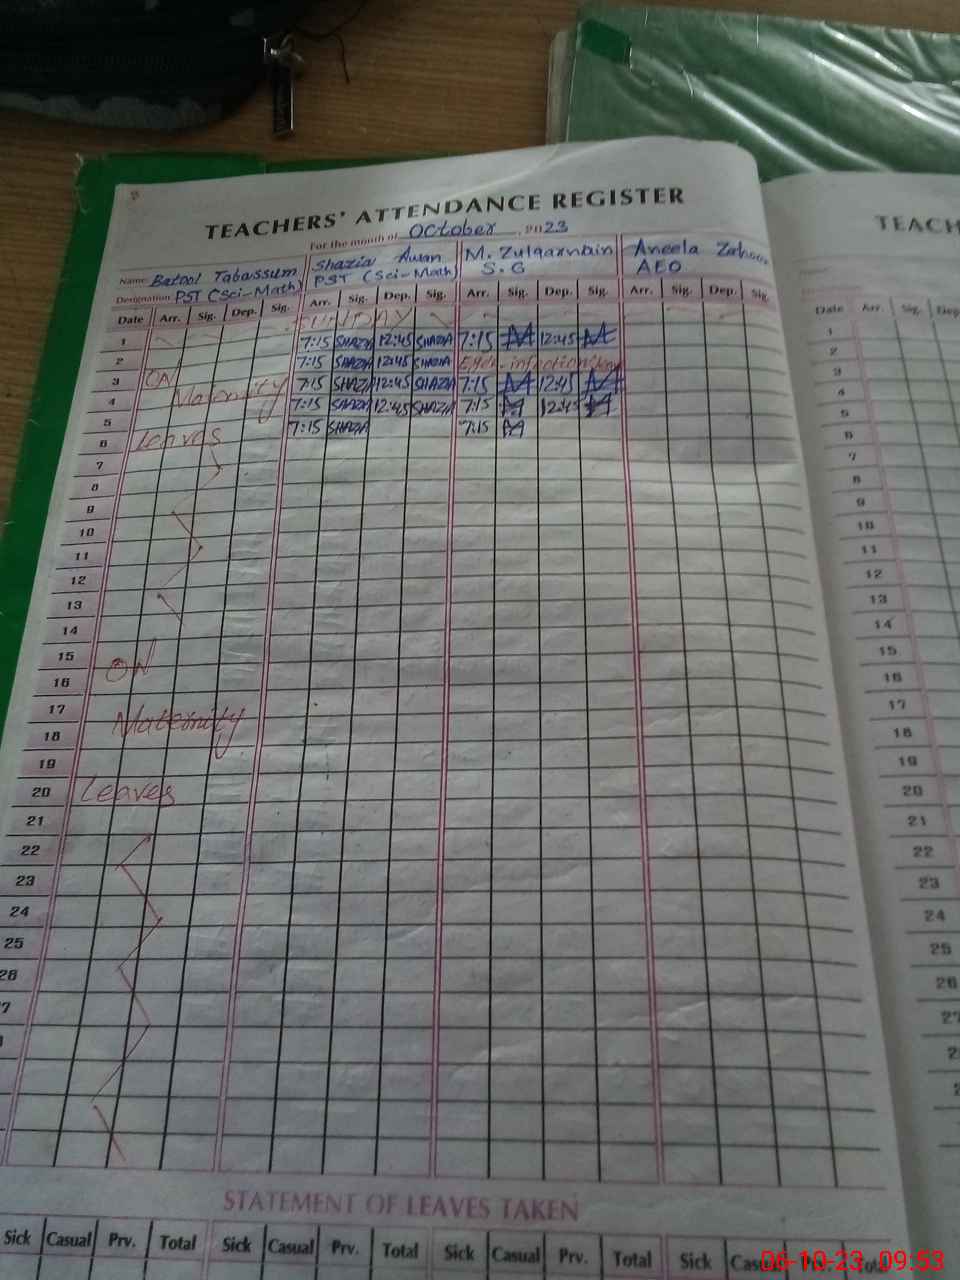 TEACHERS' ATTENDANCE REGISTER
For the month of October, 2023
Name Batool Tabassum Shazia Awan M. Zulqarnain Aneela Zahoor
Designation PST (Sci-Math) PST (Sci-Math) S.G AEO
Date Arr. Sig. Dep. Sig. Arr. Sig. Dep. Sig. Arr. Sig. Dep. Sig. Arr. Sig. Dep. Sig.
1 SUNDAY
2 7:15 SHAZIA 12:45 SHAZIA 7:15 12:45
3 ON 7:15 SHAZIA 12:45 SHAZIA
4 Maternity 7:15 SHAZIA 12:45 SHAZIA 7:15 12:45
5 7:15 SHAZIA 12:45 SHAZIA 7:15 12:45
6 Leaves 7:15 SHAZIA 7:15
7
8
9
10
11
12
13
14
15
16 ON
17
18 Maternity
19
20 Leaves
21
22
23
24
25
26
STATEMENT OF LEAVES TAKEN
Sick Casual Prv. Total Sick Casual Prv. Total Sick Casual Prv. Total Sick Casual Prv. Total
TEACH
Date Arr. Sig. Dep
1
2
3
4
5
6
7
8
9
10
11
12
13
14
15
16
17
18
19
20
21
22
23
24
25
26
27
06-10-23 09:53